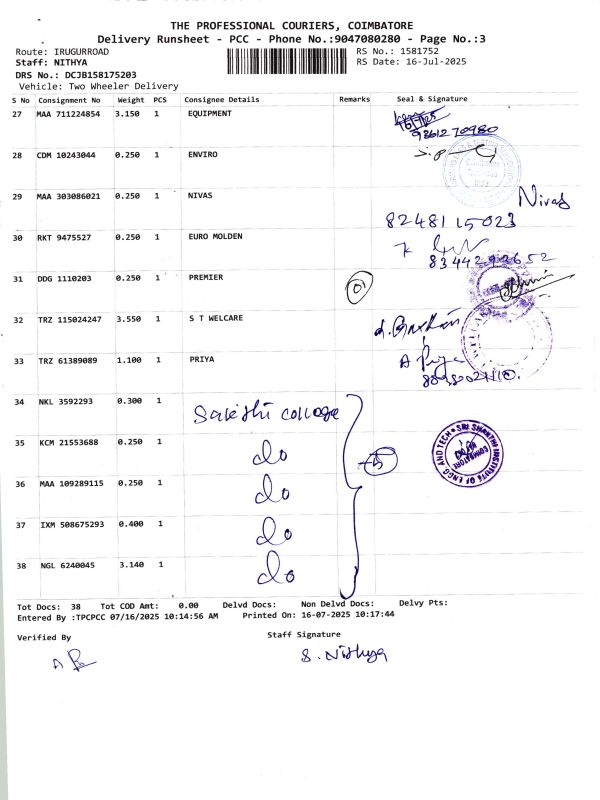 THE PROFESSIONAL COURIERS, COIMBATORE
Delivery Runsheet - PCC - Phone No.:9047080280 - Page No.:3
Route: IRUGURROAD
RS No.: 1581752
Staff: NITHYA
RS Date: 16-Jul-2025
DRS No.: DCJB158175203
Vehicle: Two Wheeler Delivery
S No Consignment No Weight PCS Consignee Details Remarks Seal & Signature
27 MAA 711224854 3.150 1 EQUIPMENT
9361270980
28 CDM 10243044 0.250 1 ENVIRO
29 MAA 303086021 0.250 1 NIVAS
Nivas
8248115023
30 RKT 9475527 0.250 1 EURO MOLDEN
8344292652
31 DDG 1110203 0.250 1 PREMIER
32 TRZ 115024247 3.550 1 S T WELCARE
33 TRZ 61389089 1.100 1 PRIYA
A Priya
34 NKL 3592293 0.300 1
Sakthi college
35 KCM 21553688 0.250 1 do
5
SRI SHANTHI INSTITUTE OF ENGG AND TECH
COIMBATORE
36 MAA 109289115 0.250 1 do
37 IXM 508675293 0.400 1 do
38 NGL 6240045 3.140 1 do
Tot Docs: 38 Tot COD Amt: 0.00 Delvd Docs: Non Delvd Docs: Delvy Pts:
Entered By :TPCPCC 07/16/2025 10:14:56 AM Printed On: 16-07-2025 10:17:44
Verified By
Staff Signature
S. Nithya